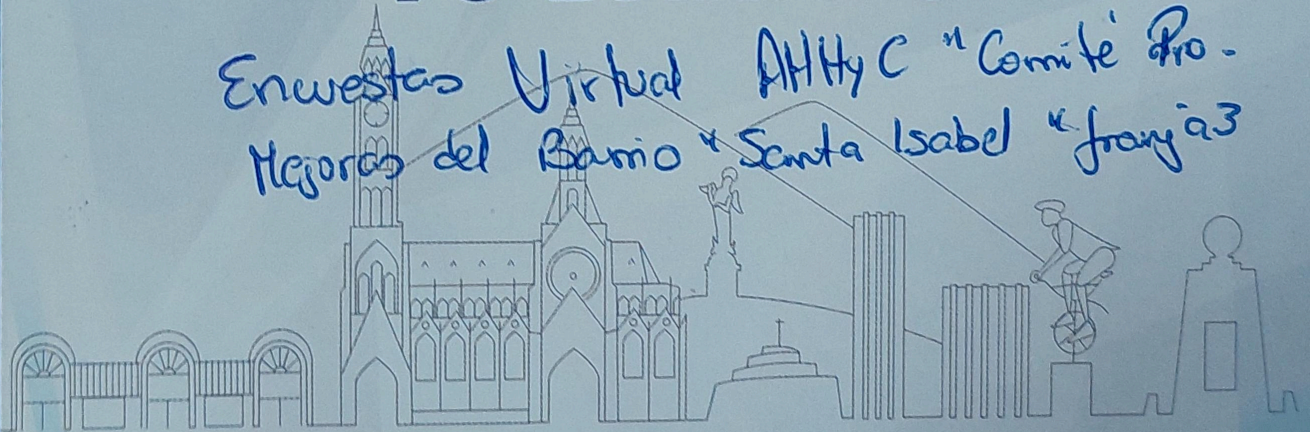 Encuestas Virtual AHHyC "Comité Pro-
Mejoras del Barrio "Santa Isabel" franja3